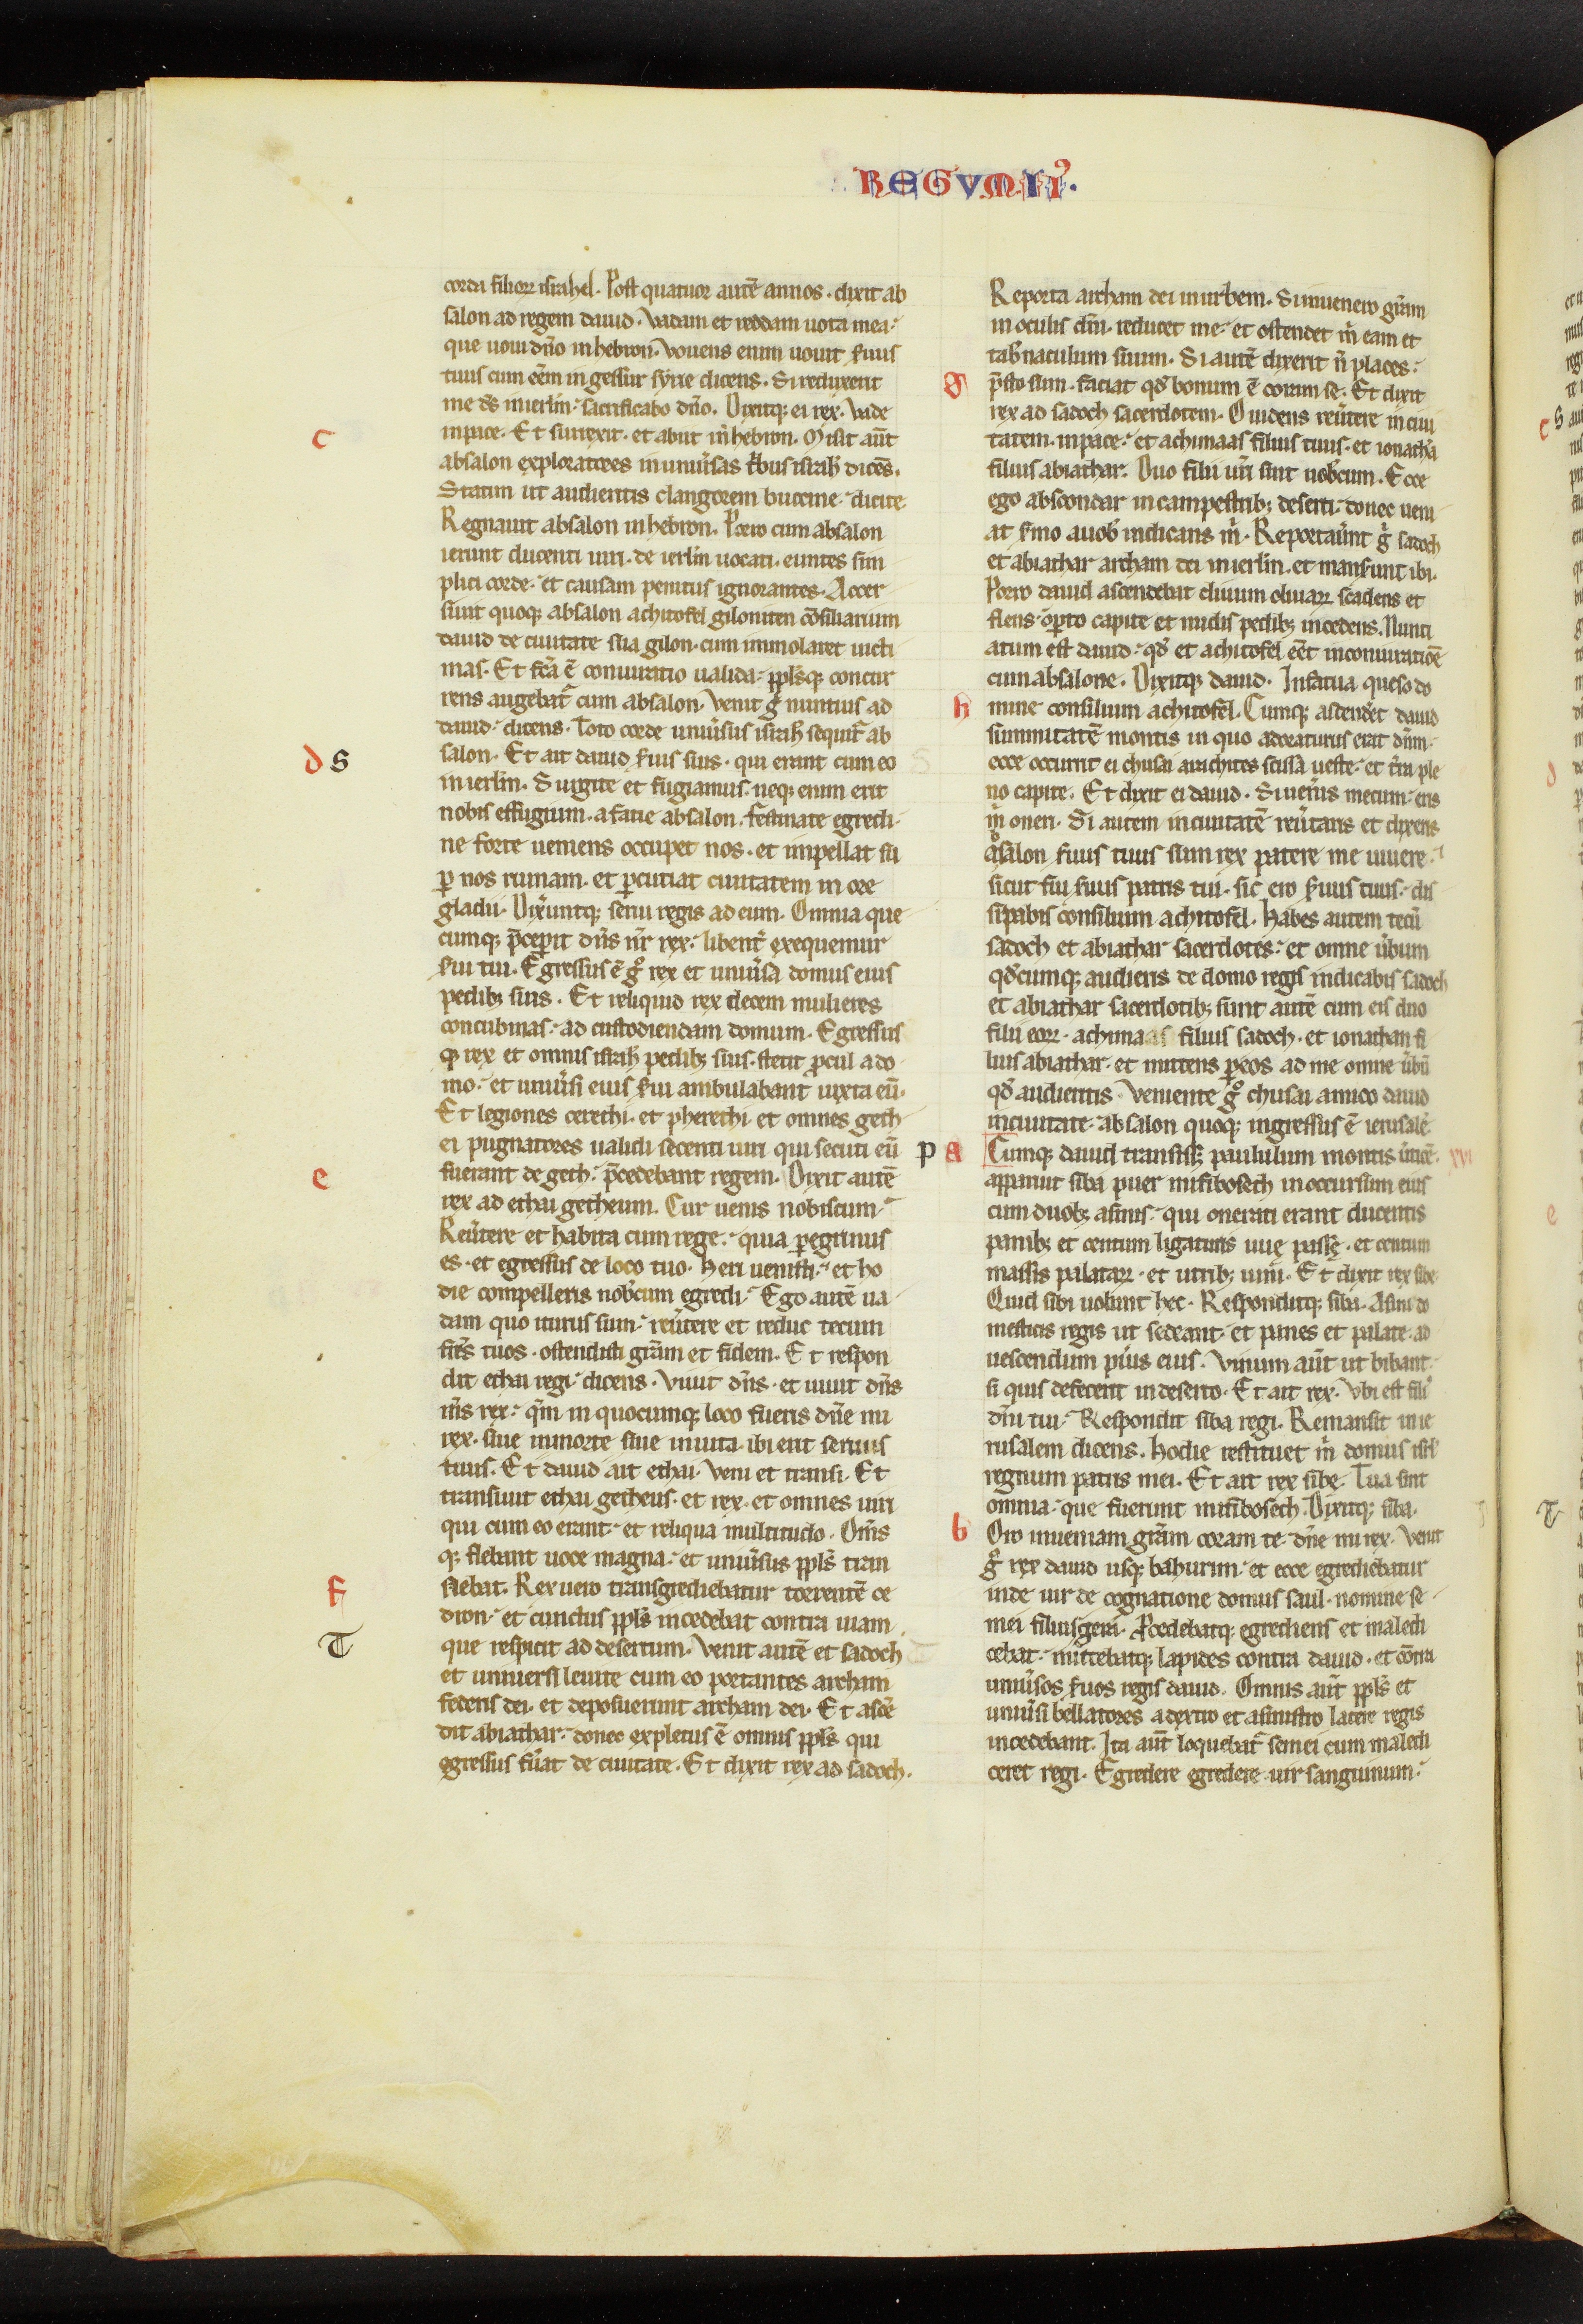 REGVM II⁹.
corda filioꝝ israhel. Post quatuor autē annos. dixit ab
salon ad regem dauid. Vadam et reddam uota mea
que uoui dn̄o in hebron. Vouens enim uouit ẜuus
tuus cum eēm in gessur syrie dicens. Si reduxerit
me dn̄s in ierl̄m: sacrificabo dn̄o. Dixitqꝫ ei rex. Vade
in pace. Et surrexit. et abiit in hebron. Misit aūt
c
absalon exploratores in uniūsas tͥbus isrl̄ dicēs.
Statim ut audieritis clangorem buccine: dicite
Regnauit absalon in hebron. Porro cum absalon
ierunt ducenti uiri. de ierl̄m uocati. euntes sim
plici corde. et causam penitus ignorantes. Accer
siuit quoqꝫ absalon achitofel giloniten cōsiliarium
dauid de ciuitate sua gilon. cum immolaret uicti
mas. Et fc̄a ē coniuratio ualida: pplsqꝫ concur
rens augebat̄ cum absalon. Venit gͦ nuntius ad
dauid. dicens. Toto corde uniūsus isrl̄ sequit̄ ab
d s
salon. Et ait dauid ẜuis suis. qui erant cum eo
in ierl̄m. Surgite et fugiamus. neqꝫ enim erit
nobis effugium. a facie absalon. festinate egredi.
ne forte ueniens occupet nos. et impellat su
ꝑ nos ruinam. et ꝑcutiat ciuitatem in ore
gladii. Dix̄untqꝫ serui regis ad eum. Omnia que
cumqꝫ p̄ceꝑit dn̄s nr̄ rex. libent̄ exequemur
ẜui tui. Egressus ē gͦ rex et uniūsa domus eius
pedibꝫ suis. Et reliquid rex decem mulieres
concubinas. ad custodiendam domum. Egressus
qꝫ rex et omnis isrl̄ pedibꝫ suis. stetit ꝓcul a do
mo. et uniūsi eius ẜui ambulabant iuxta eū.
Et legiones cerethi. et pherethi. et omnes geth
ei pugnatores ualidi secenti uiri qui secuti eū
fuerant de geth. p̄cedebant regem. Dixit autē
e
rex ad ethai getheum. Cur uenis nobiscum
Reūtere et habita cum rege. quia ꝑegrinus
es. et egressus de loco tuo. Heri uenisti. et ho
die compelleris nob̄cum egredi. Ego autē ua
dam quo iturus sum. reūtere et reduc tecum
fr̄es tuos. ostendisti gr̄am et fidem. Et respon
dit ethai regi. dicens. Viuit dn̄s. et uiuit dn̄s
m̄s rex. qm̄ in quocumqꝫ loco fueris dn̄e mi
rex. siue in morte siue in uita. ibi erit seruus
tuus. Et dauid ait ethai. Veni et transi. Et
transiuit ethai getheus. et rex. et omnes uiri
qui cum eo erant. et reliqua multitudo. Om̄s
qꝫ flebant uoce magna. et uniūsus ppl̄s tran
f
siebat. Rex uero transgrediebatur torrentē ce
dron. et cunctus ppl̄s incedebat contra uiam
T
que respicit ad desertum. Venit autē et sadoch
et uniuersi leuite cum eo portantes archam
federis dei. et deposuerunt archam dei. Et ascē
dit abiathar. donec expletus ē omnis ppl̄s qui
egressus fūat de ciuitate. Et dixit rex ad sadoch.
Reporta archam dei in urbem. Si inuenero gr̄am
in oculis dn̄i. reducet me. et ostendet m̄ eam et
tab̄naculum suum. Si autē dixerit n̄ places.
g
p̄sto sum. faciat qd̄ bonum ē coram se. Et dixit
rex ad sadoch sacerdotem. O uidens reūtere in ciui
tatem. in pace. et achimaas filius tuus. et ionatha
filius abiathar. Duo filii ur̄i sint uob̄cum. Ecce
ego abscondar in campestribꝫ deserti. donec ueni
at ẜmo a uob̄ indicans m̄. Reportaūnt gͦ sadoch
et abiathar archam dei in ierl̄m. et manẜunt ibi.
Porro dauid ascendebat cliuum oliuaꝝ scandens et
flens. oꝑto capite et nudis pedibꝫ incedens. Nunti
atum est dauid. qd̄ et achitofel eēt in coniuratiōe
cum absalone. Dixitqꝫ dauid. Infatua queso do
h
mine consilium achitofel. Cumqꝫ ascenderet dauid
summitatē montis in quo adoraturus erat dn̄m.
ecce occurrit ei chusai arachites scissa ueste. et tr̄ra ple
no capite. Et dixit ei dauid. Si uen̄is mecum. eris
m̄ oneri. Si autem in ciuitatē reūtaris et dixeris
absalon ẜuus tuus sum rex patere me uiuere.
sicut fui ẜuus patris tui. sic ero ẜuus tuus. dis
sipabis consilium achitofel. Habes autem tecū
sadoch et abiathar sacerdotes. et omne ūbum
qd̄cumqꝫ audieris de domo regis indicabis sadoch
et abiathar sacerdotibꝫ sunt autē cum eis duo
filii eoꝝ. achimaas filius sadoch. et ionathan fi
lius abiathar. et mittens ꝑ eos ad me omne ūbū
qd̄ audieritis. Veniente gͦ chusai amico dauid
in ciuitate. absalon quoqꝫ ingressus ē ierusalē
p a
Cumqꝫ dauid transissꝫ paululum montis ūticē. XVI
apparuit siba puer mifibosech in occursum eius
cum duobꝫ asinis. qui onerati erant ducentis
panibꝫ et centum ligaturis uuę passę. et centum
massis palataꝝ. et utribꝫ uini. Et dixit rex sibe
Quid sibi uolunt hec. Responditqꝫ siba. Asini do
mesticis regis ut sedeant. et panes et palate. ad
uescendum pūis eius. Vinum aūt ut bibant.
si quis defecerit in deserto. Et ait rex. Vbi est fili
dn̄i tui. Respondit siba regi. Remansit in ie
rusalem dicens. Hodie restituet m̄ domus isrl̄
regnum patris mei. Et ait rex sibe. Tua sint
omnia. que fuerunt mifibosech. Dixitqꝫ siba.
b
Oro inueniam gr̄am coram te. dn̄e mi rex. Venit
gͦ rex dauid usqꝫ bahurim. et ecce egrediebatur
inde uir de cognatione domus saul. nomine se
mei filius gera. Procedebatqꝫ egrediens et maledi
cebat. mittebatqꝫ lapides contra dauid. et cōtra
uniūsos ẜuos regis dauid. Omnis aūt ppl̄s et
uniūsi bellatores a dextro et a sinistro latere regis
incedebant. Ita aūt loquebat̄ semei cum maledi
ceret regi. Egredere egredere uir sanguinum